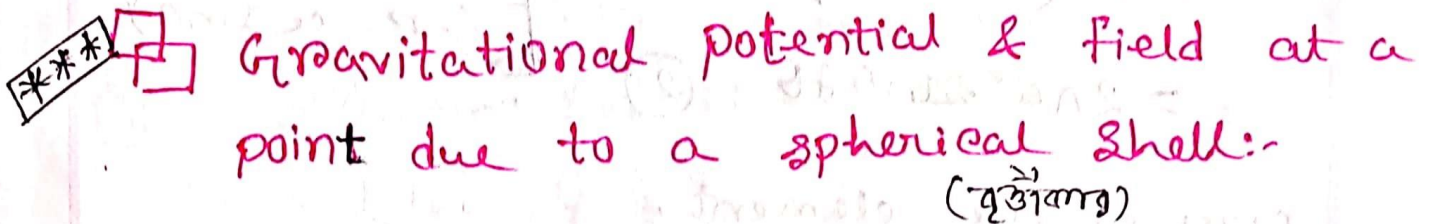 *** Gravitational potential & field at a
point due to a spherical shell:-
(বৃত্তাকার)